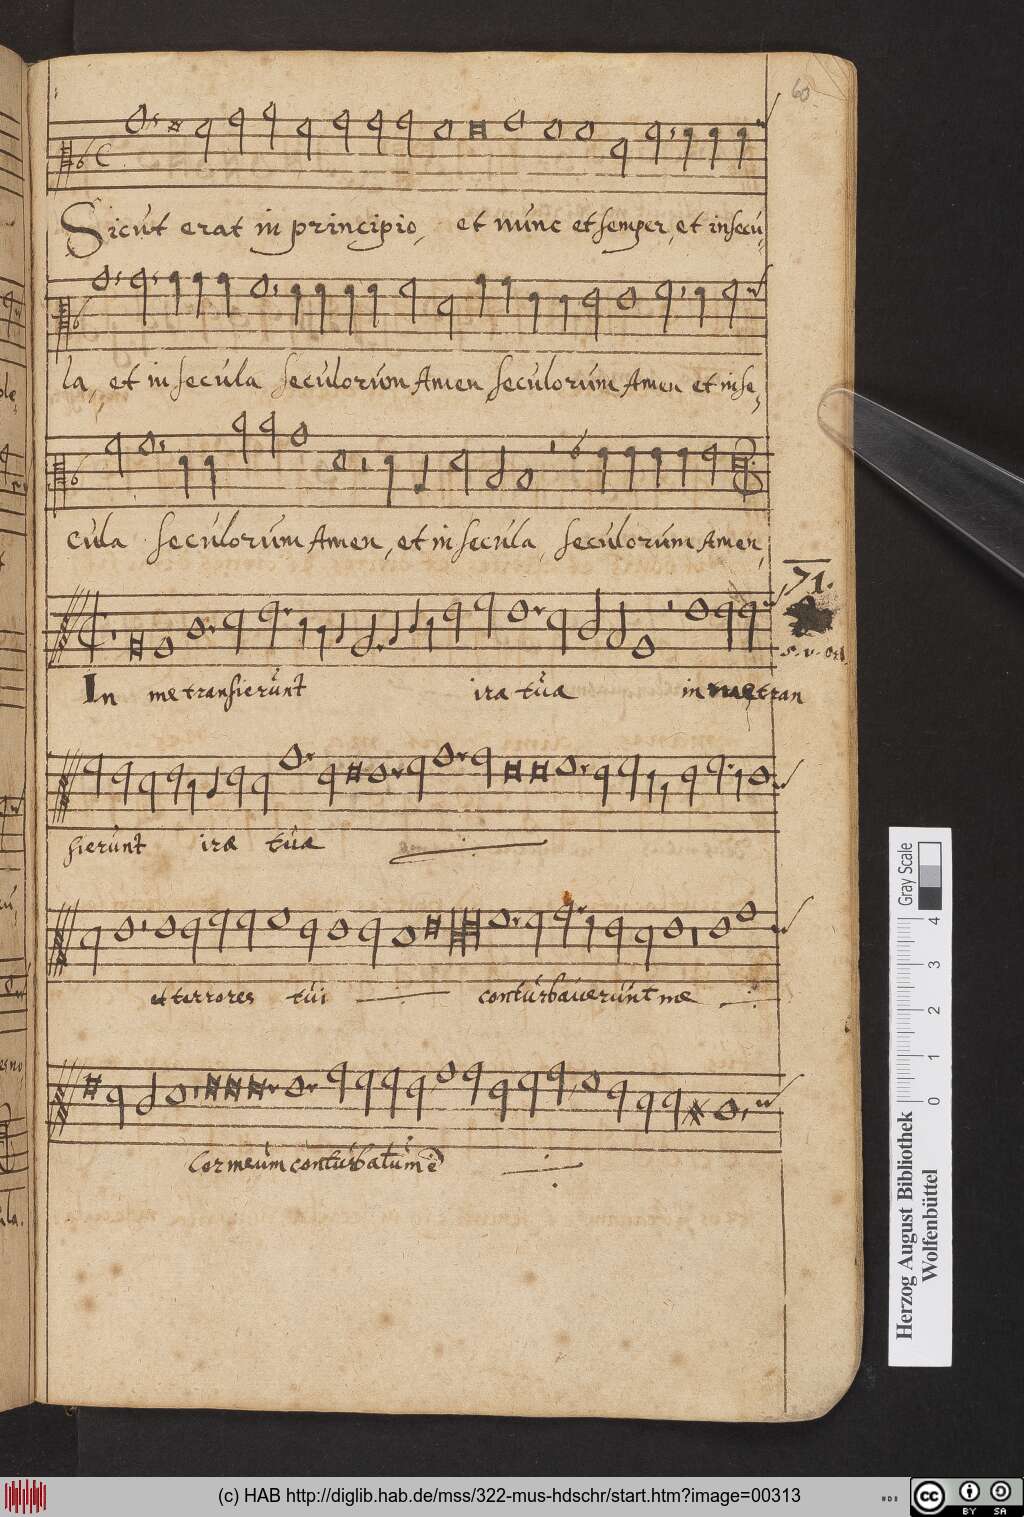 60
Sicut erat in principio, et nunc et semper, et in secu,
la, et in secula seculorum Amen seculorum Amen et in se,
cula seculorum Amen, et in secula, seculorum Amen,
71.
In me transierunt ira tua in me tran
sierunt iræ tua
et terrores tui conturbauerunt me
Cor meum conturbatum ē
Gray Scale
0 1 2 3 4
Herzog August Bibliothek
Wolfenbüttel
(c) HAB http://diglib.hab.de/mss/322-mus-hdschr/start.htm?image=00313
cc BY SA